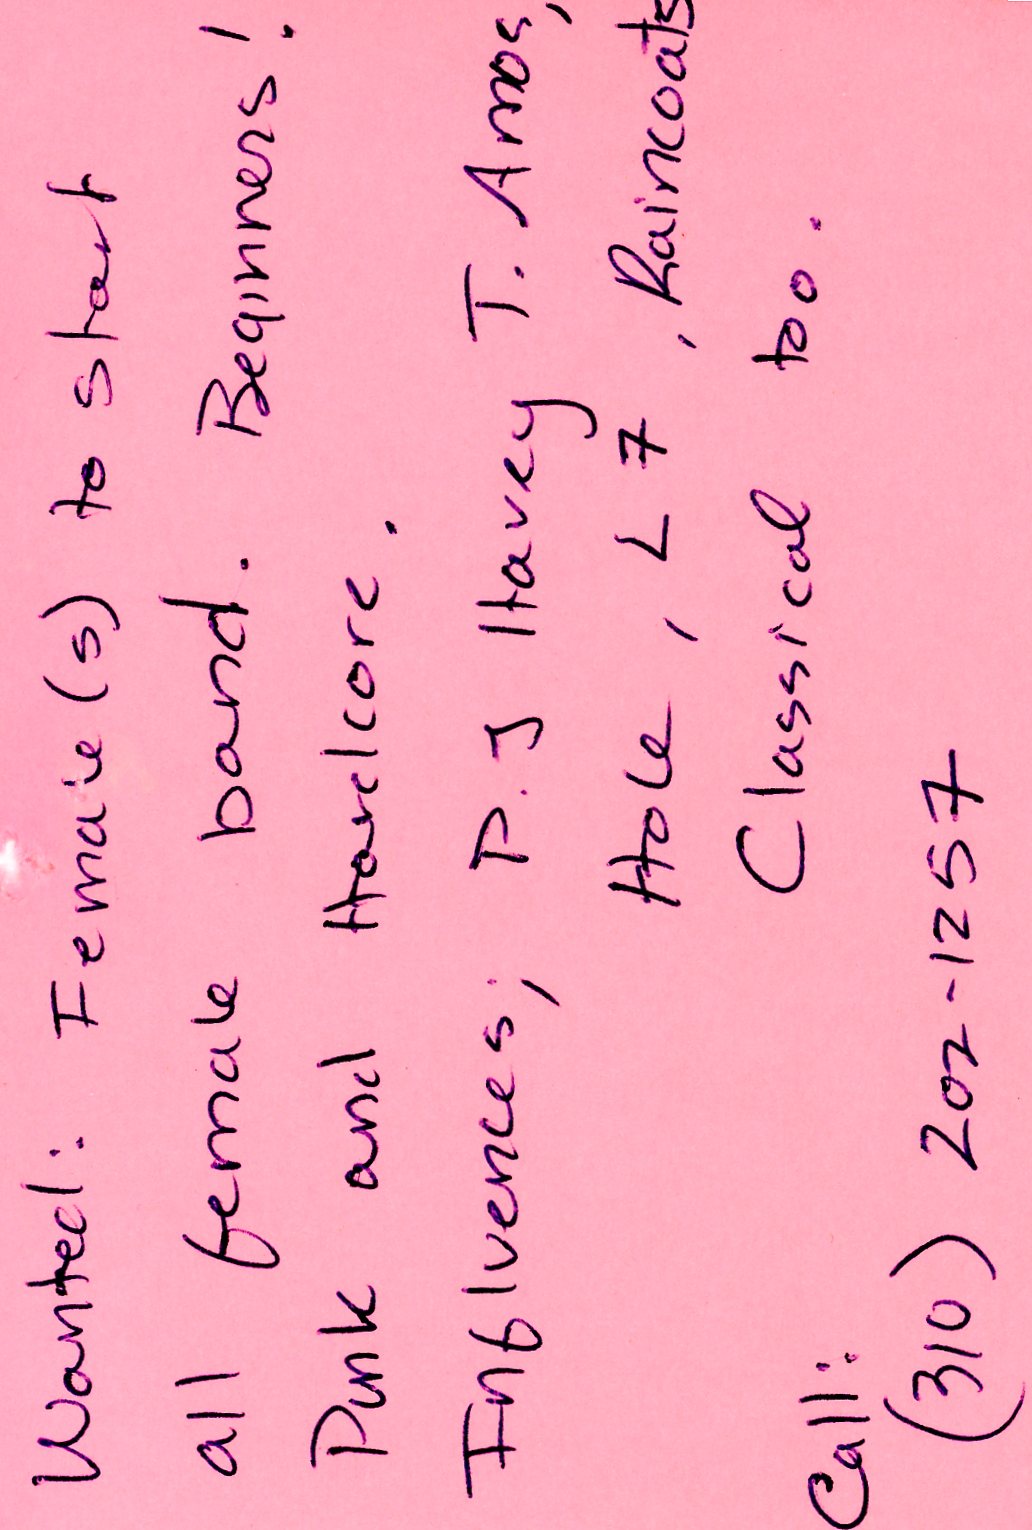 Wanted: Female(s) to start
all female band. Beginners!
Punk and Hardcore.
Influences; P.J Havey T. Amos,
Hole, L7, Raincoats
Classical too.
Call:
(310) 202-1257